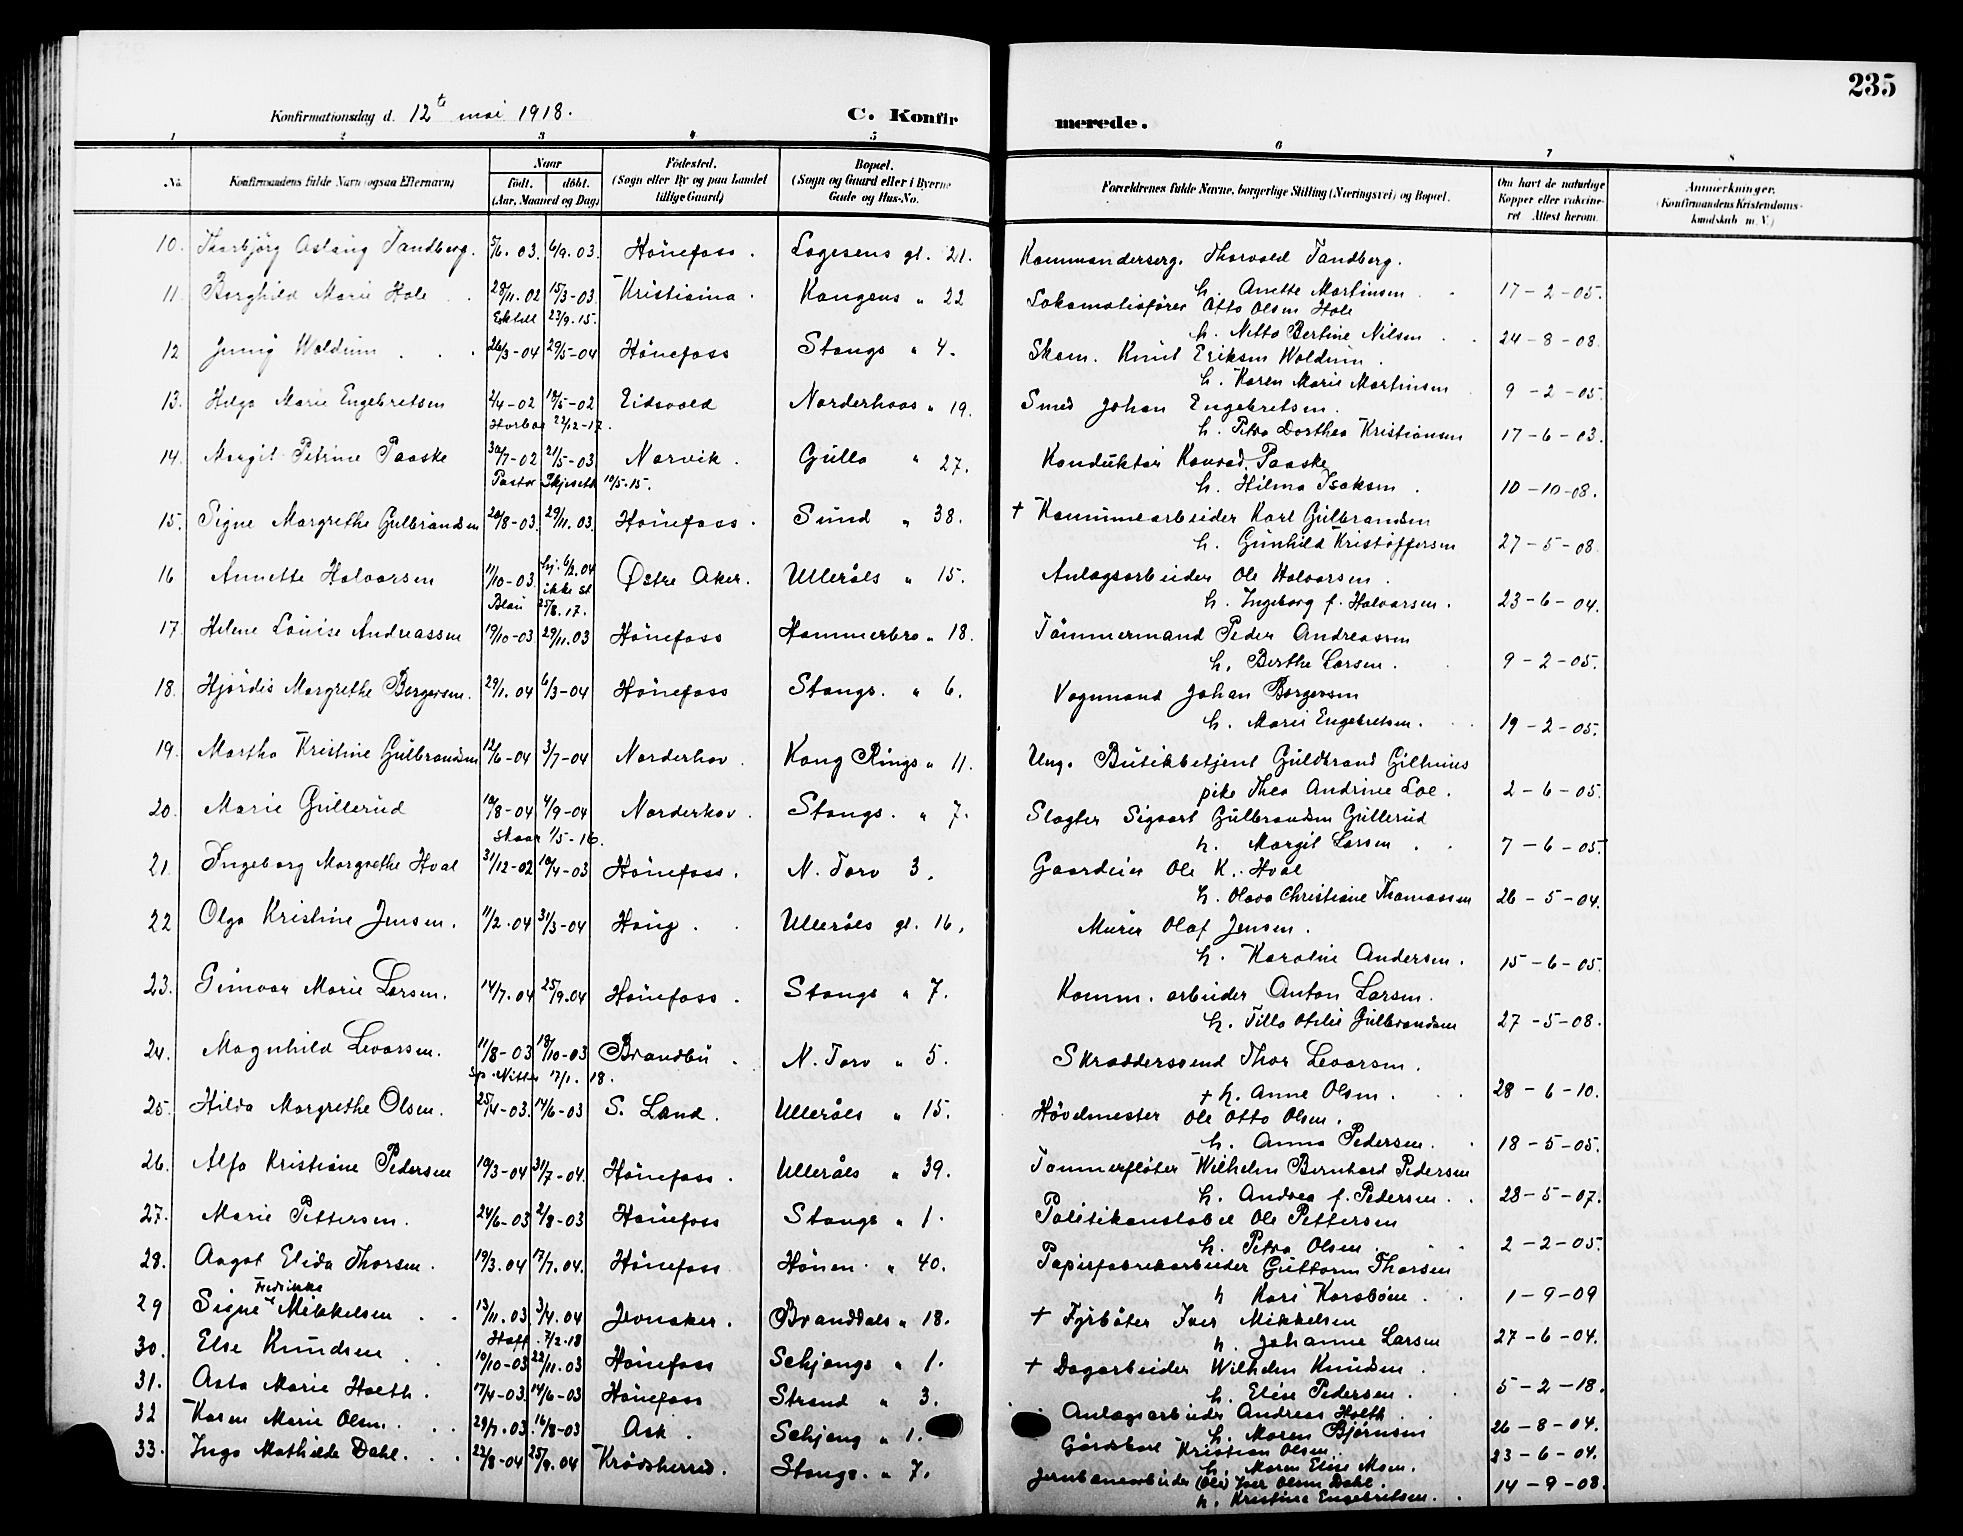 235
Konfirmationsdag d. 12te mai 1918.
C. Konfirmerede.
1 2 3 4 5 6 7 8
No.
Konfirmandens fulde Navn (ogsaa Efternavn)
Naar
født. døbt.
(Aar, Maaned og Dag)
Fødested.
(Sogn eller By og paa Landet
tillige Gaard)
Bopæl.
(Sogn og Gaard eller i Byerne
Gade og Hus-No.
Forældrenes fulde Navne, borgerlige Stilling (Næringsvei) og Bopæl.
Om havt de naturlige
Kopper eller vakcine-
ret Attest herom.
Anmærkninger.
(Konfirmandens Kristendoms-
kundskab m. V.)
10. Thorbjörg Aslaug Tandberg. 5/6. 03. 6/9. 03. Hönefoss. Lagesens gt. 21. Kommandersерg. Thorvald Tandberg.
h. Anette Martinsen. 17-2-05.
11. Borghild Marie Hole 28/11. 02 15/3-03. Kristiania. Kongens " 22 Lokomotivförer Otto Olsen Hole
23/9. 15. h. Nitta Bertine Nilsen 24-8-08.
12 Jenny Woldum 26/3-04 29/5-04 Hönefoss Stangs " 4. Skom. Knut Eriksen Woldum.
h. Karen Marie Martinsen 9-2-05.
13. Helga Marie Engebretsen 2/4-02 18/5-02 Eidsvold Norderhovs " 19. Smed Johan Engebretsen.
22/12-17. h. Petra Dorthea Kristiansen 17-6-03.
14. Margit Petrine Paaske 30/7-02 21/5-03 Narvik. Gulla " 27. Konduktör Konrad Paaske
Pastor Skjeseth 10/5. 15. h. Hilma Isaksen. 10-10-08.
15. Signe Margrethe Gulbrandsen 20/8-03. 29/11. 03. Hönefoss. Sund " 38. + Kommunearbeider Karl Gulbrandsen
h. Gunhild Kristoffersen 27-5-08.
16 Annette Halvorsen 11/10-03. hj. 6/2. 04 Østre Aker. Ulleråls " 15. Anlægsarbeider Ole Halvorsen.
ikke st
25/8. 17. h. Ingeborg f. Halvorsen. 23-6-04.
17. Helene Louise Andreassen 19/10-03 29/11. 03 Hönefoss Hammerbro " 18. Tömmermand Peder Andreassen
h. Berthe Larsen. 9-2-05.
18. Hjördis Margrethe Borgersen. 29/1. 04 6/3-04 Hönefoss Stangs. " 6. Vognmand Johan Borgersen
h. Marie Engebretsen. 19-2-05.
19. Martha Kristine Gulbrandsen 12/6-04 3/7-04 Norderhov. Kong Rings " 11. Ung. Butikbetjent Guldbrand Gilhuus
pike Thea Andrine Loe. 2-6-05.
20. Marie Gullerud 10/8-04 4/9-04 Norderhov. Stangs. " 7. Slagter Sigvart Gulbrandsen Gullerud
Skaar 1/5-16. h. Margit Larsen. 7-6-05.
21. Ingeborg Margrethe Hval 31/12-02 10/4-03 Hönefoss. N. Torv 3. Gaardeier Ole K. Hval
h. Olava Christiane Thomassen 26-5-04.
22 Olga Kristine Jensen. 11/2. 04 31/3-04 Haug. Ulleråls gt. 16. Murer Olaf Jensen.
h. Karoline Andersen. 15-6-05.
23. Gunvor Marie Larsen. 14/7. 04 25/9. 04 Hönefoss. Stangs " 7. Komm. arbeider Anton Larsen.
h. Tilla Otilie Gulbrandsen 27-5-08.
24. Magnhild Levorsen. 11/8-03 18/10-03 Brandbu. N. Torv " 5. Skræddersvend Thor Levorsen.
Sp. Nitter 17/1. 18. + h. Anne Olsen. 28-6-10.
25. Hilda Margrethe Olsen. 25/4-03. 14/6-03 S. Land. Ulleråls " 15. Hövlmester Ole Otto Olsen.
h. Anna Pedersen. 18-5-05.
26. Alfa Kristiane Pedersen 19/3-04 31/7-04. Hönefoss. Ulleråls " 39. Tömmerflöter Wilhelm Bernhard Pedersen
h. Andrea f. Pedersen. 28-5-07.
27. Marie Pettersen. 24/6-03 2/8-03 Hönefoss Stangs " 1. Politikonstabel Ole Pettersen
h. Petra Olsen. 2-2-05.
28. Aagot Elida Thorsen. 19/3. 04 17/7. 04. Hönefoss Hönen " 40. Papirfabrikarbeider Guttorm Thorsen
h Kari Korsböen. 1-9-09
29 Signe Fredrikke Mikkelsen 13/11. 03 3/4. 04 Jevnaker. Branddals " 18. + Fyrböter Iver Mikkelsen
Hoff 7/2-18 h. Johanne Larsen 27-6-04.
30. Else Knudsen 10/10-03 22/11. 03 Hönefoss Schjongs " 1. + Dagarbeider Wilhelm Knudsen.
h. Elise Pedersen. 5-2-18.
31. Asta Marie Holth. 17/4-03. 14/6-03 Hönefoss Strand " 3. Anlægsarbeider Andreas Holth
h. Maren Bjørnsen 26-8-04.
32 Karen Marie Olsen. 29/7. 03. 16/8-03 Ask. Schjong " 1. Gårdskarl Kristian Olsen.
h. Maren Elise Moen. 23-6-04.
33. Inga Mathilde Dahl. 22/8-04 25/9. 04 Krödsherred. Stangs. " 7. Jernbanearbeider (Ole) Iver Olsen Dahl.
h. Kristine Engebretsen. 14-9-08.